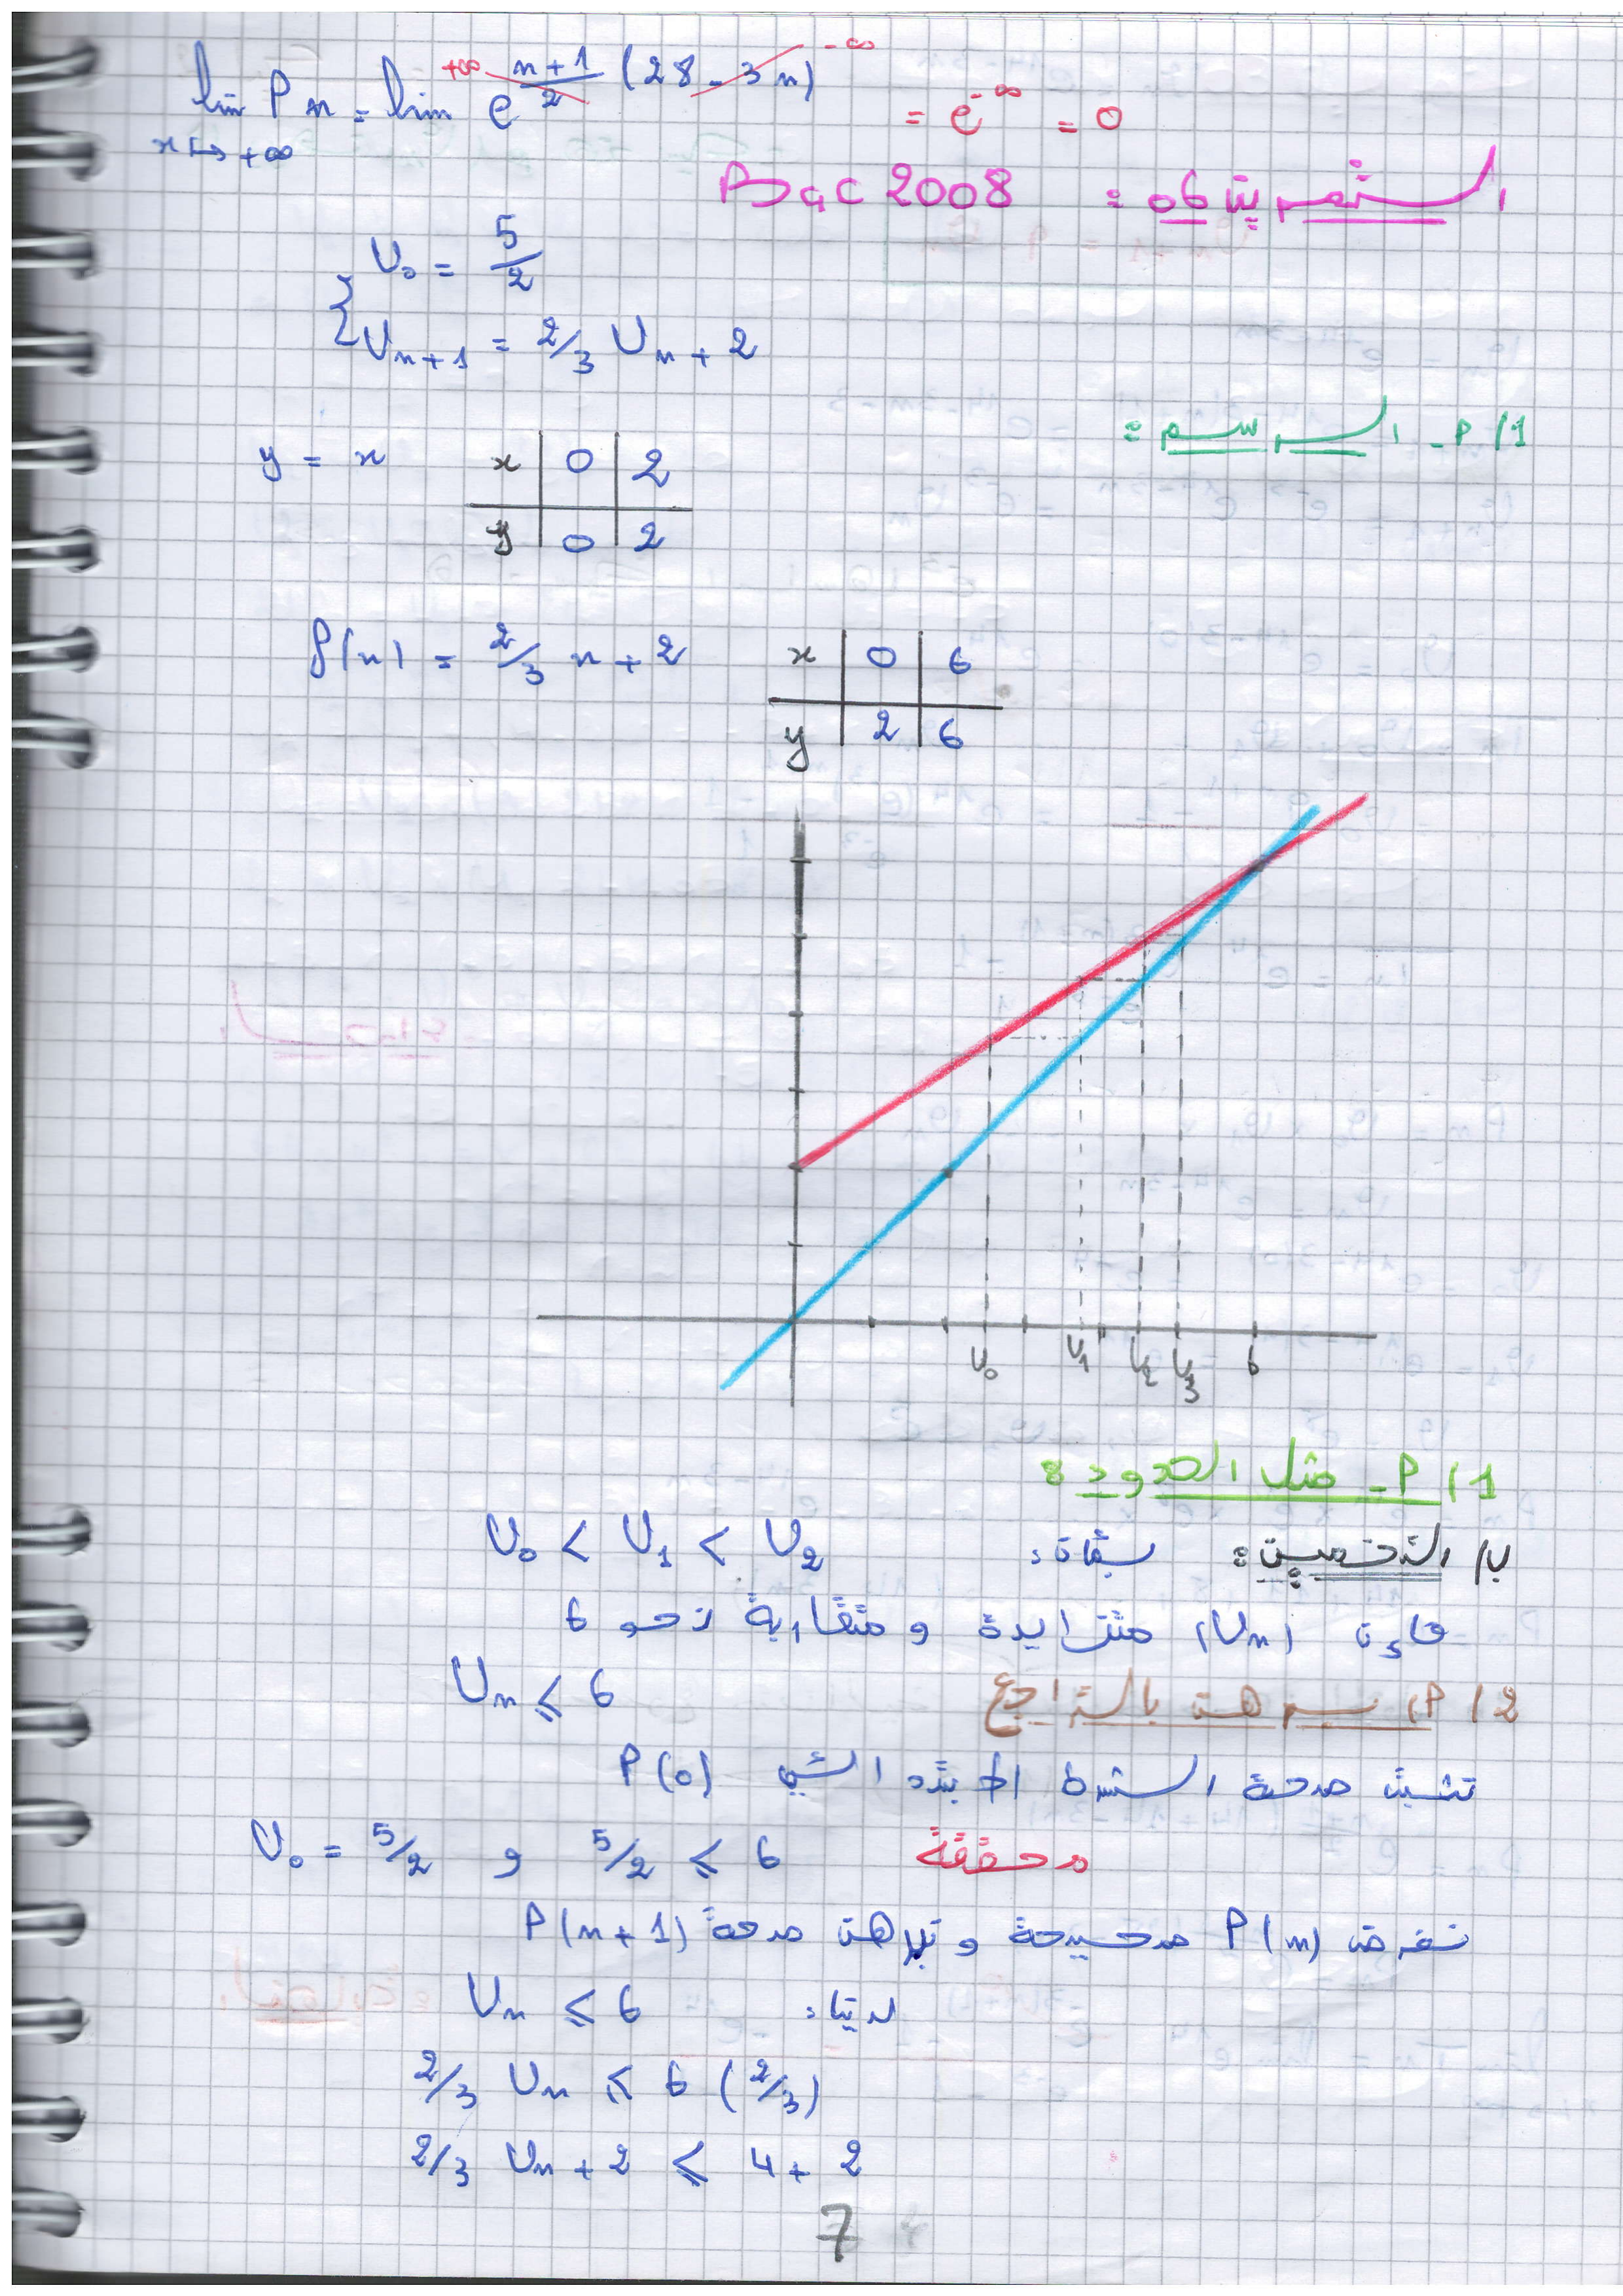 lim Pn = lim e^{(n+1)/2 (28 - 3n)} = e^{-∞} = 0
x ↦ +∞
+∞ -∞
التمرين 06 : Bac 2008
U₀ = 5/2
Uₙ₊₁ = 2/3 Uₙ + 2
1/ P - الرسم :
y = x
x | 0 | 2
y | 0 | 2
f(x) = 2/3 x + 2
x | 0 | 6
y | 2 | 6
U₀ U₁ U₂ U₃ 6
1/ P - مثل الحدود :
ب/ التخمين : بما أن : U₀ < U₁ < U₂
فإن (Uₙ) متزايدة و متقاربة نحو 6
2/ P) برهن بالتراجع Uₙ ⩽ 6
نثبت صحة الشرط الابتدائي P(0)
U₀ = 5/2 و 5/2 ⩽ 6 محققة
نفرض P(n) صحيحة و نبرهن صحة P(n+1)
لدينا : Uₙ ⩽ 6
2/3 Uₙ ⩽ 6 (2/3)
2/3 Uₙ + 2 ⩽ 4 + 2
7